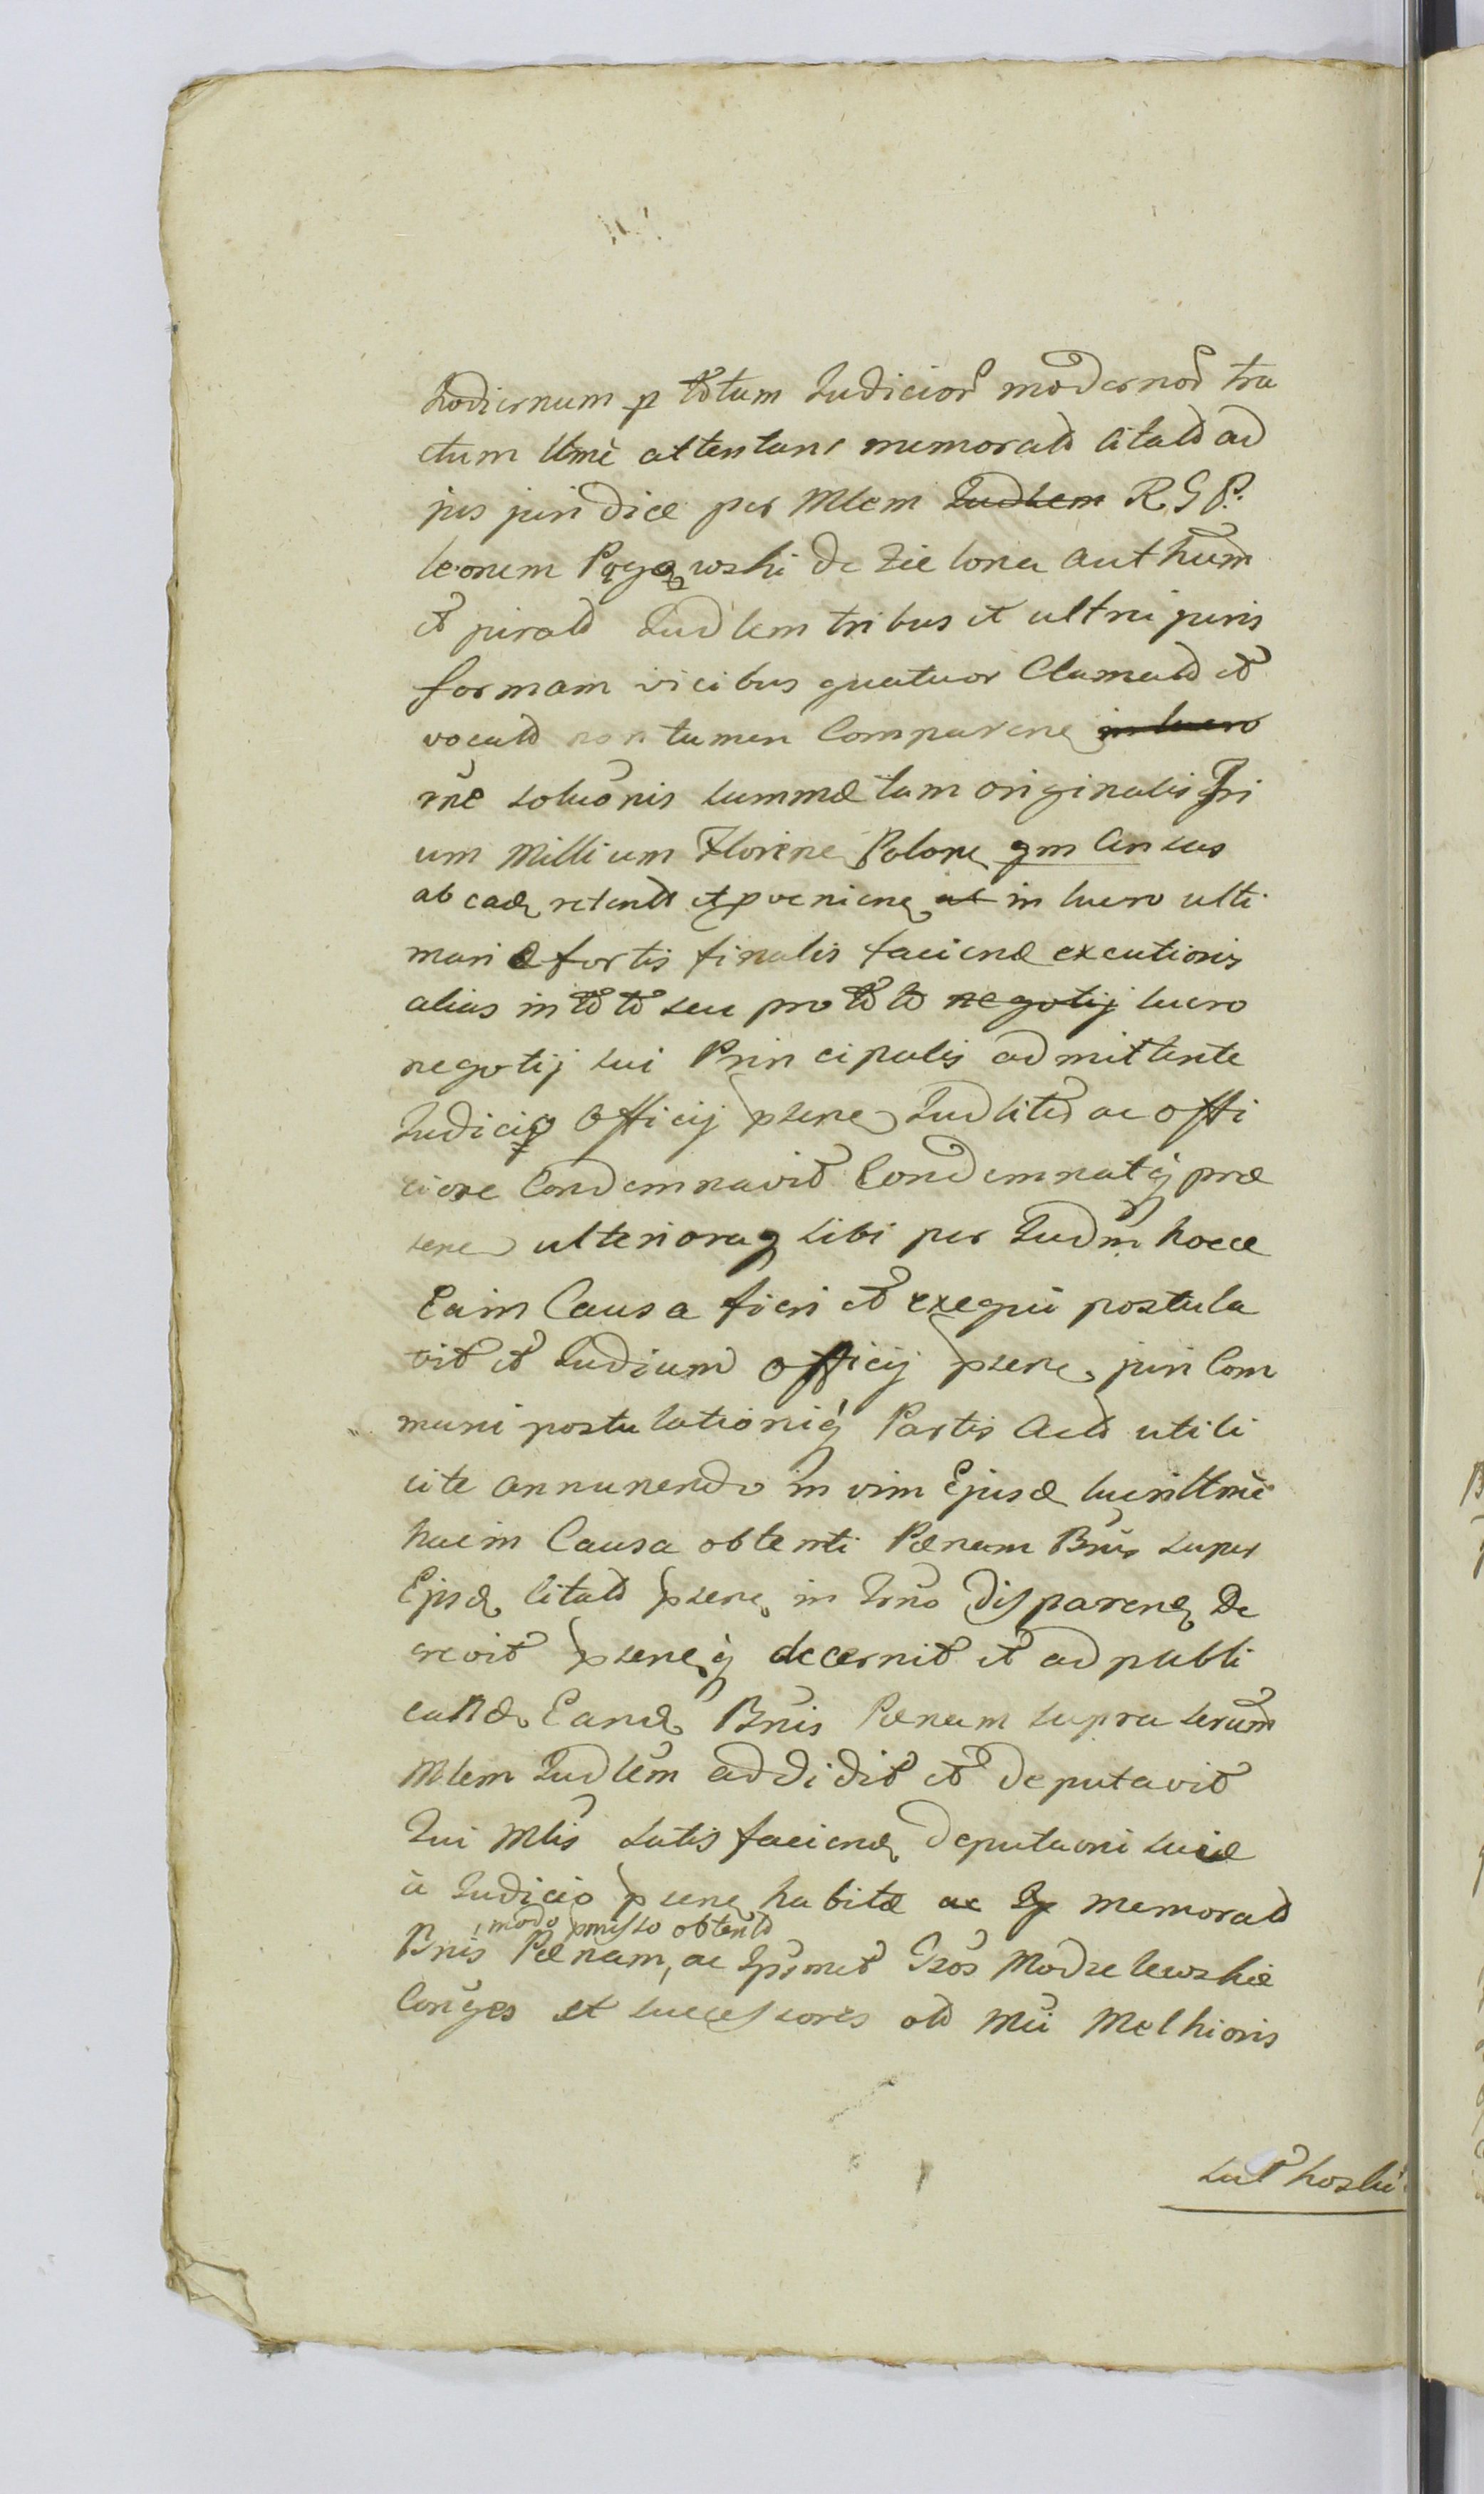 hodiernum p totum Judicior modernor tra
ctum ltmè attentans memorato citato ad
jus juridice per Mlem Judlem R G P.
leonem Pągowski de Zielona authum
et jurato Judlem tribus et ultri juris
formam vicibus quatuor Clamato et
vocato non tamen Comparene in lucro
rne soluconis summæ tam originalis Tri
um Millium Florene Polone qm Census
ab eade retento et pveniene ac in lucro ulti
mariæ fortis finalis faciend executionis
alias in toto seu pro toto negotij lucro
negotij sui Principalis admittente
Judicio Officij psene Judlite ac offi
ciose Condemnavit Condemnatq præ
sene ulterioraq sibi per Judm hocce
Eain Causa fieri et exequi postula
vit et Judium Officij psene juri Com
muni postulationiq Partis Acto utili
cite annuendo in vim Ejusd lucri ltmè
hacin Causa obtenti Pænam Bnis super
Ejsd Citato psene in Trno disparene De
crevit pseneq decernit et ad publi
cand Eand Bnis Pænam supra serum
Mlem Judlem addidit et deputavit
Qui Mlis satisfaciend deputaoni suæ
à Judicio psene habitæ ac Ip memorato
modo pmisso obtento
Bnis Pænam, ac Ipsmet Gsos Modzelewskie
Conges et successores od Mci Melhioris
Sut koski